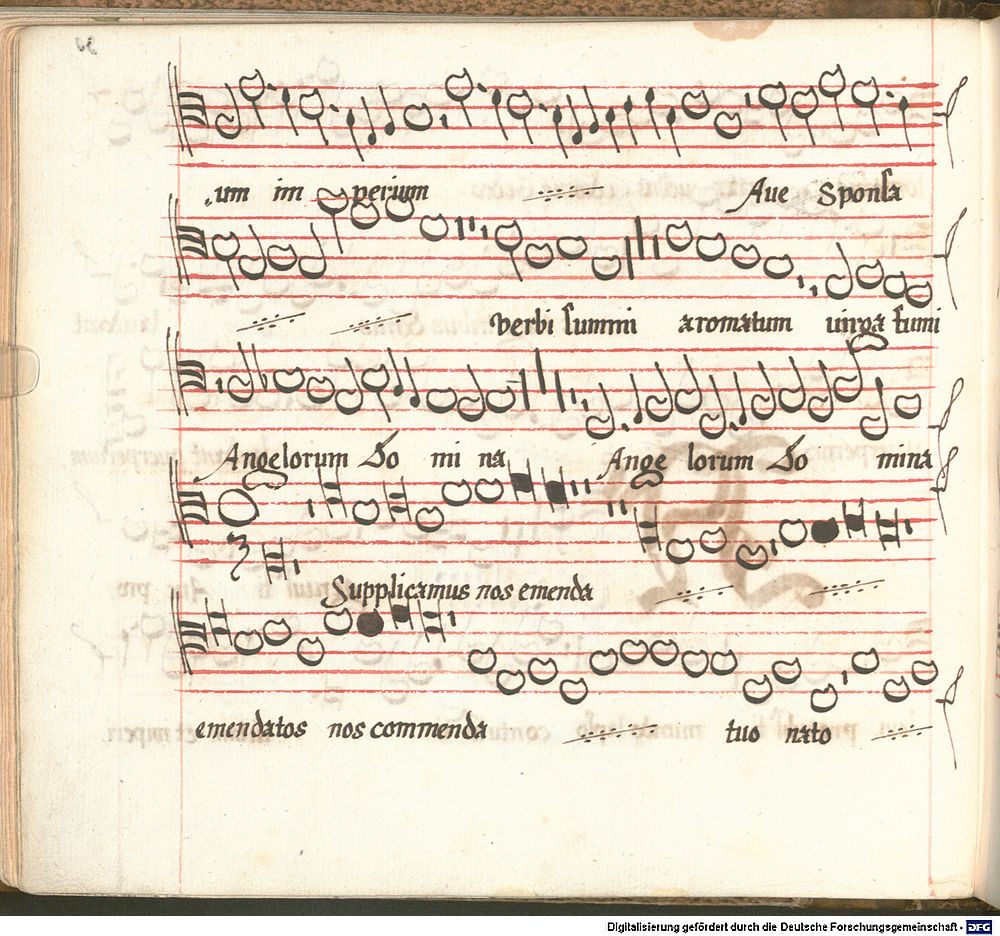 um im perium Aue Sponsa
verbi summi aromatum uirga fumi
Angelorum Do mi na Ange lorum Do mina
Supplicamus nos emenda
emendatos nos commenda tuo nato
Digitalisierung gefördert durch die Deutsche Forschungsgemeinschaft - DFG